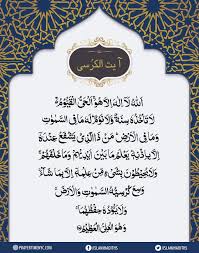 آیت الکرسی
اَللّٰهُ لَاۤ اِلٰهَ اِلَّا هُوَ اَلْحَیُّ الْقَیُّوْمُ
لَا تَاْخُذُهٗ سِنَةٌ وَّلَا نَوْمٌ لَهٗ مَا فِی السَّمٰوٰتِ
وَمَا فِی الْاَرْضِ مَنْ ذَا الَّذِیْ یَشْفَعُ عِنْدَهٗۤ
اِلَّا بِاِذْنِهٖ یَعْلَمُ مَا بَیْنَ اَیْدِیْهِمْ وَمَا خَلْفَهُمْ
وَلَا یُحِیْطُوْنَ بِشَیْءٍ مِّنْ عِلْمِهٖۤ اِلَّا بِمَا شَآءَ
وَسِعَ كُرْسِیُّهُ السَّمٰوٰتِ وَالْاَرْضَ
وَلَا یَـُٔوْدُهٗ حِفْظُهُمَا
وَهُوَ الْعَلِیُّ الْعَظِیْمُ
PRAYERTIMENYC.COM
/ISLAMHADITHS
/ISLAMHADITHS